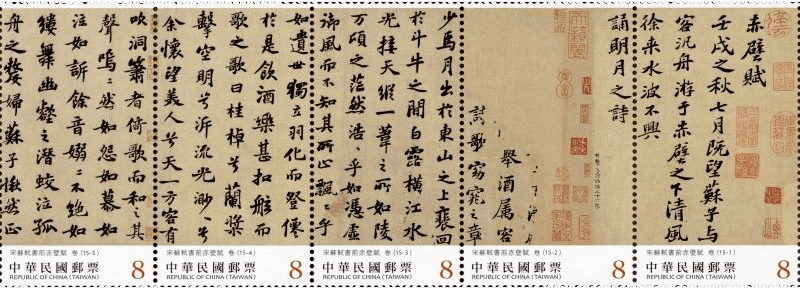 赤壁賦
壬戌之秋七月既望蘇子与
客汎舟游于赤壁之下清風
徐来水波不興
宋蘇軾書前赤壁賦 卷 (15-1)
中華民國郵票
REPUBLIC OF CHINA (TAIWAN)
8
誦明月之詩
舉酒属客
歌窈窕之章
宋蘇軾書前赤壁賦 卷 (15-2)
中華民國郵票
REPUBLIC OF CHINA (TAIWAN)
8
少焉月出於東山之上裵回
於斗牛之間白露横江水
光接天縱一葦之所如陵
万頃之茫然浩〻乎如憑虚
御風而不知其所止飄〻乎
宋蘇軾書前赤壁賦 卷 (15-3)
中華民國郵票
REPUBLIC OF CHINA (TAIWAN)
8
如遺世獨立羽化而登僊
於是飲酒樂甚扣舷而
歌之歌曰桂棹兮蘭槳
擊空明兮泝流光渺兮
余懷望美人兮天一方客有
宋蘇軾書前赤壁賦 卷 (15-4)
中華民國郵票
REPUBLIC OF CHINA (TAIWAN)
8
吹洞簫者倚歌而和之其
聲嗚〻然如怨如慕如
泣如訴餘音嫋〻不絶如
縷舞幽壑之潛蛟泣孤
舟之嫠婦蘇子愀然正
宋蘇軾書前赤壁賦 卷 (15-5)
中華民國郵票
REPUBLIC OF CHINA (TAIWAN)
8